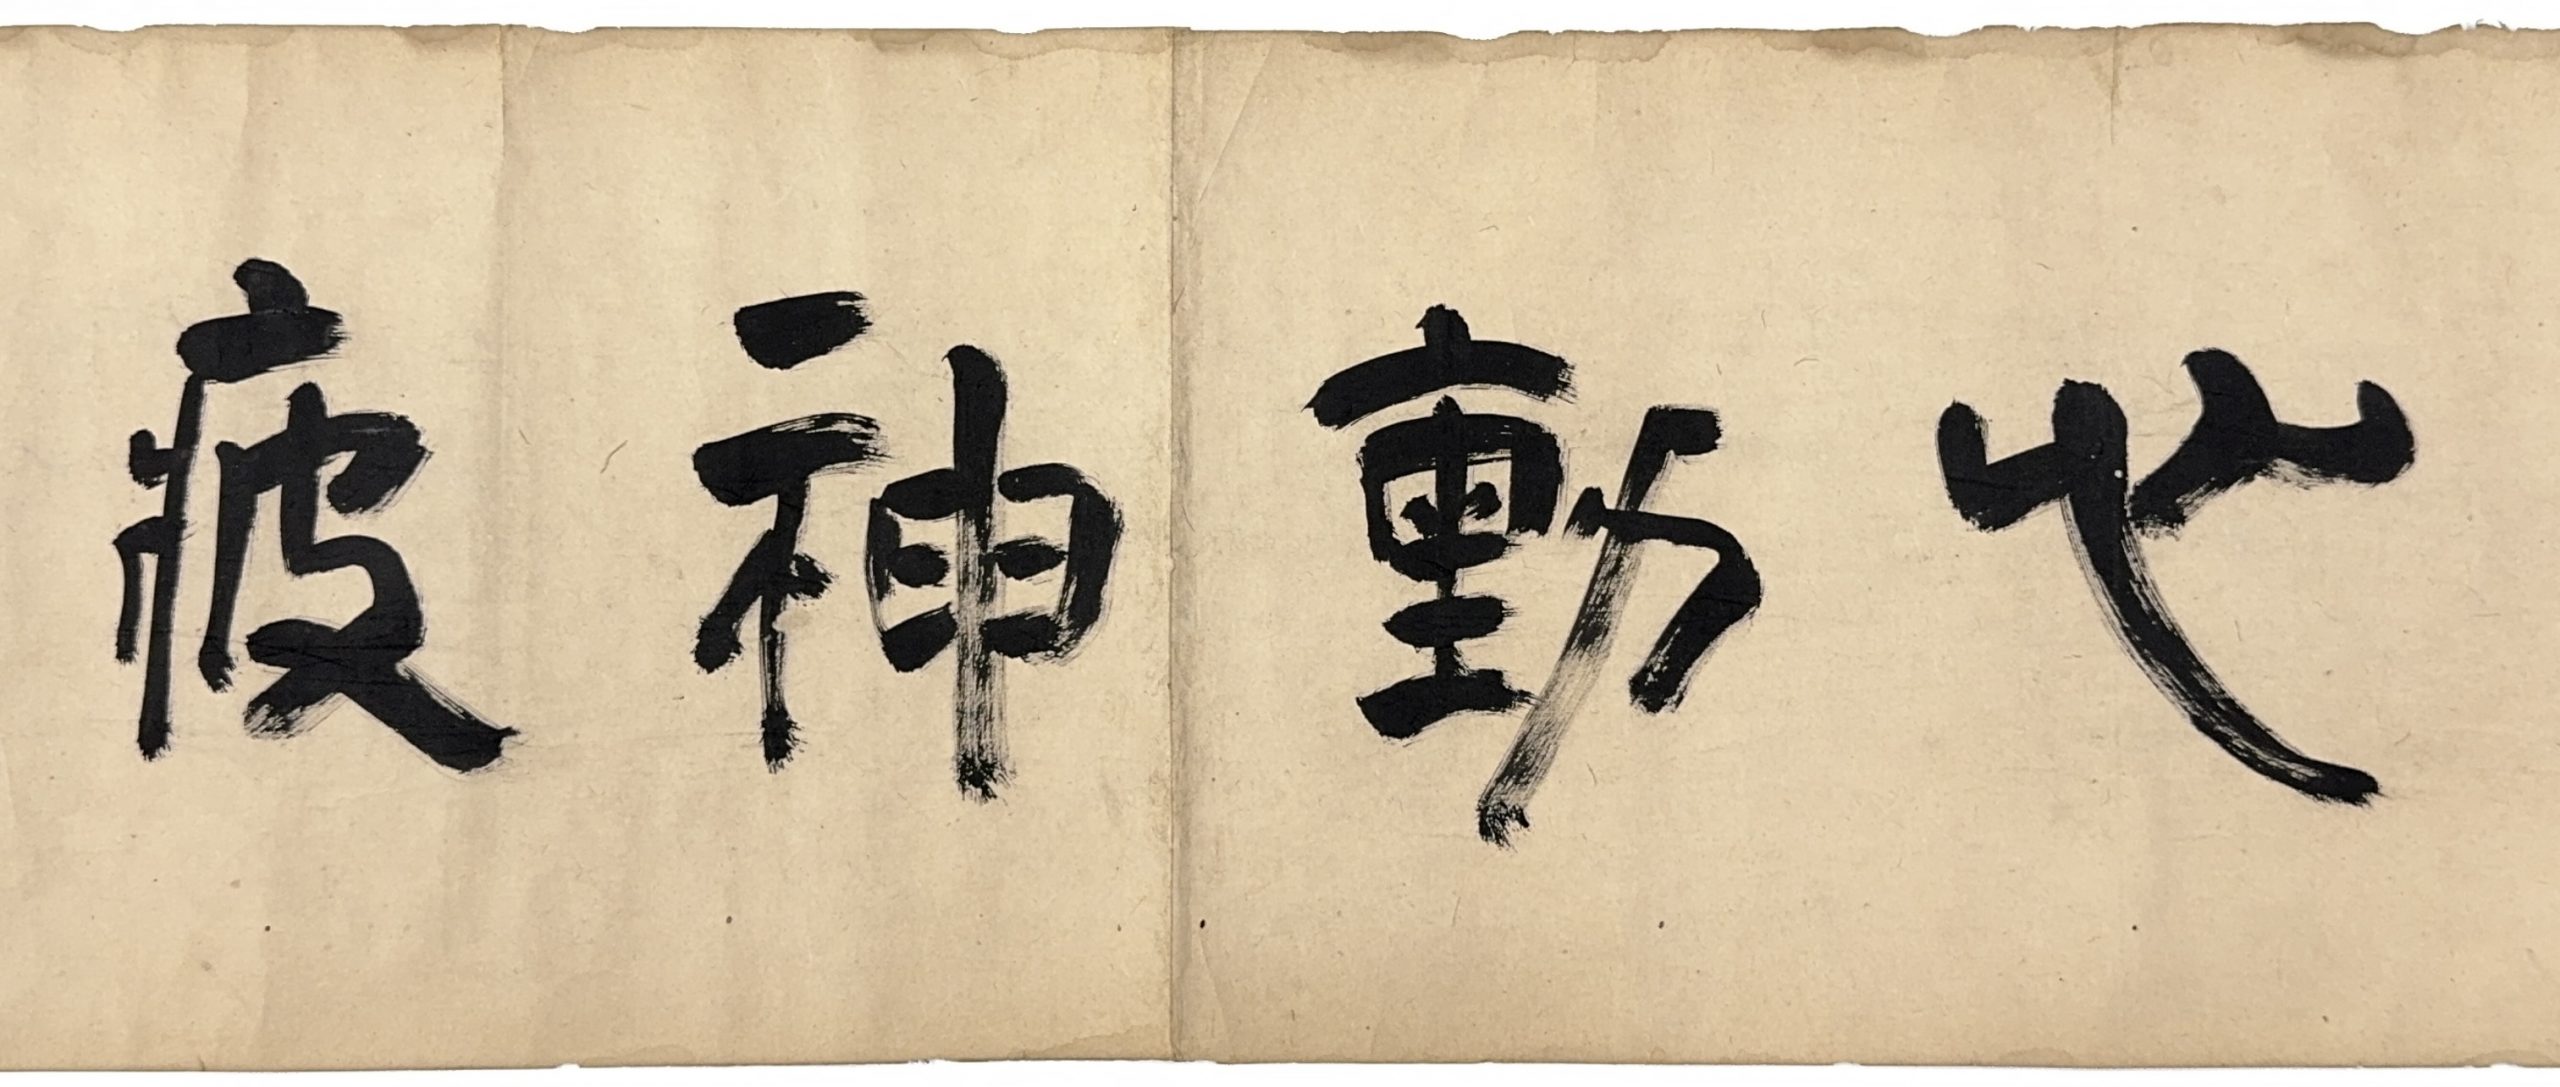 心動神疲